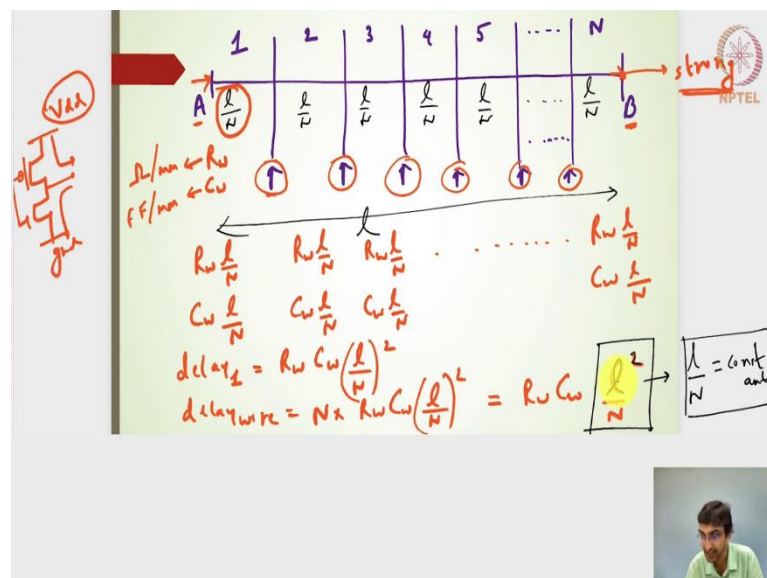 1 2 3 4 5 ..... N
A B strong
NPTEL
l/N l/N l/N l/N l/N ..... l/N
.....
Vdd
gnd
Ω/mm ← Rw
fF/mm ← Cw
↑ ↑ ↑ ↑ ↑ ↑
l
Rw l/N Rw l/N Rw l/N ........ Rw l/N
Cw l/N Cw l/N Cw l/N Cw l/N
delay1 = Rw Cw (l/N)²
delaywire = N x Rw Cw (l/N)² = Rw Cw l²/N → l/N = constant